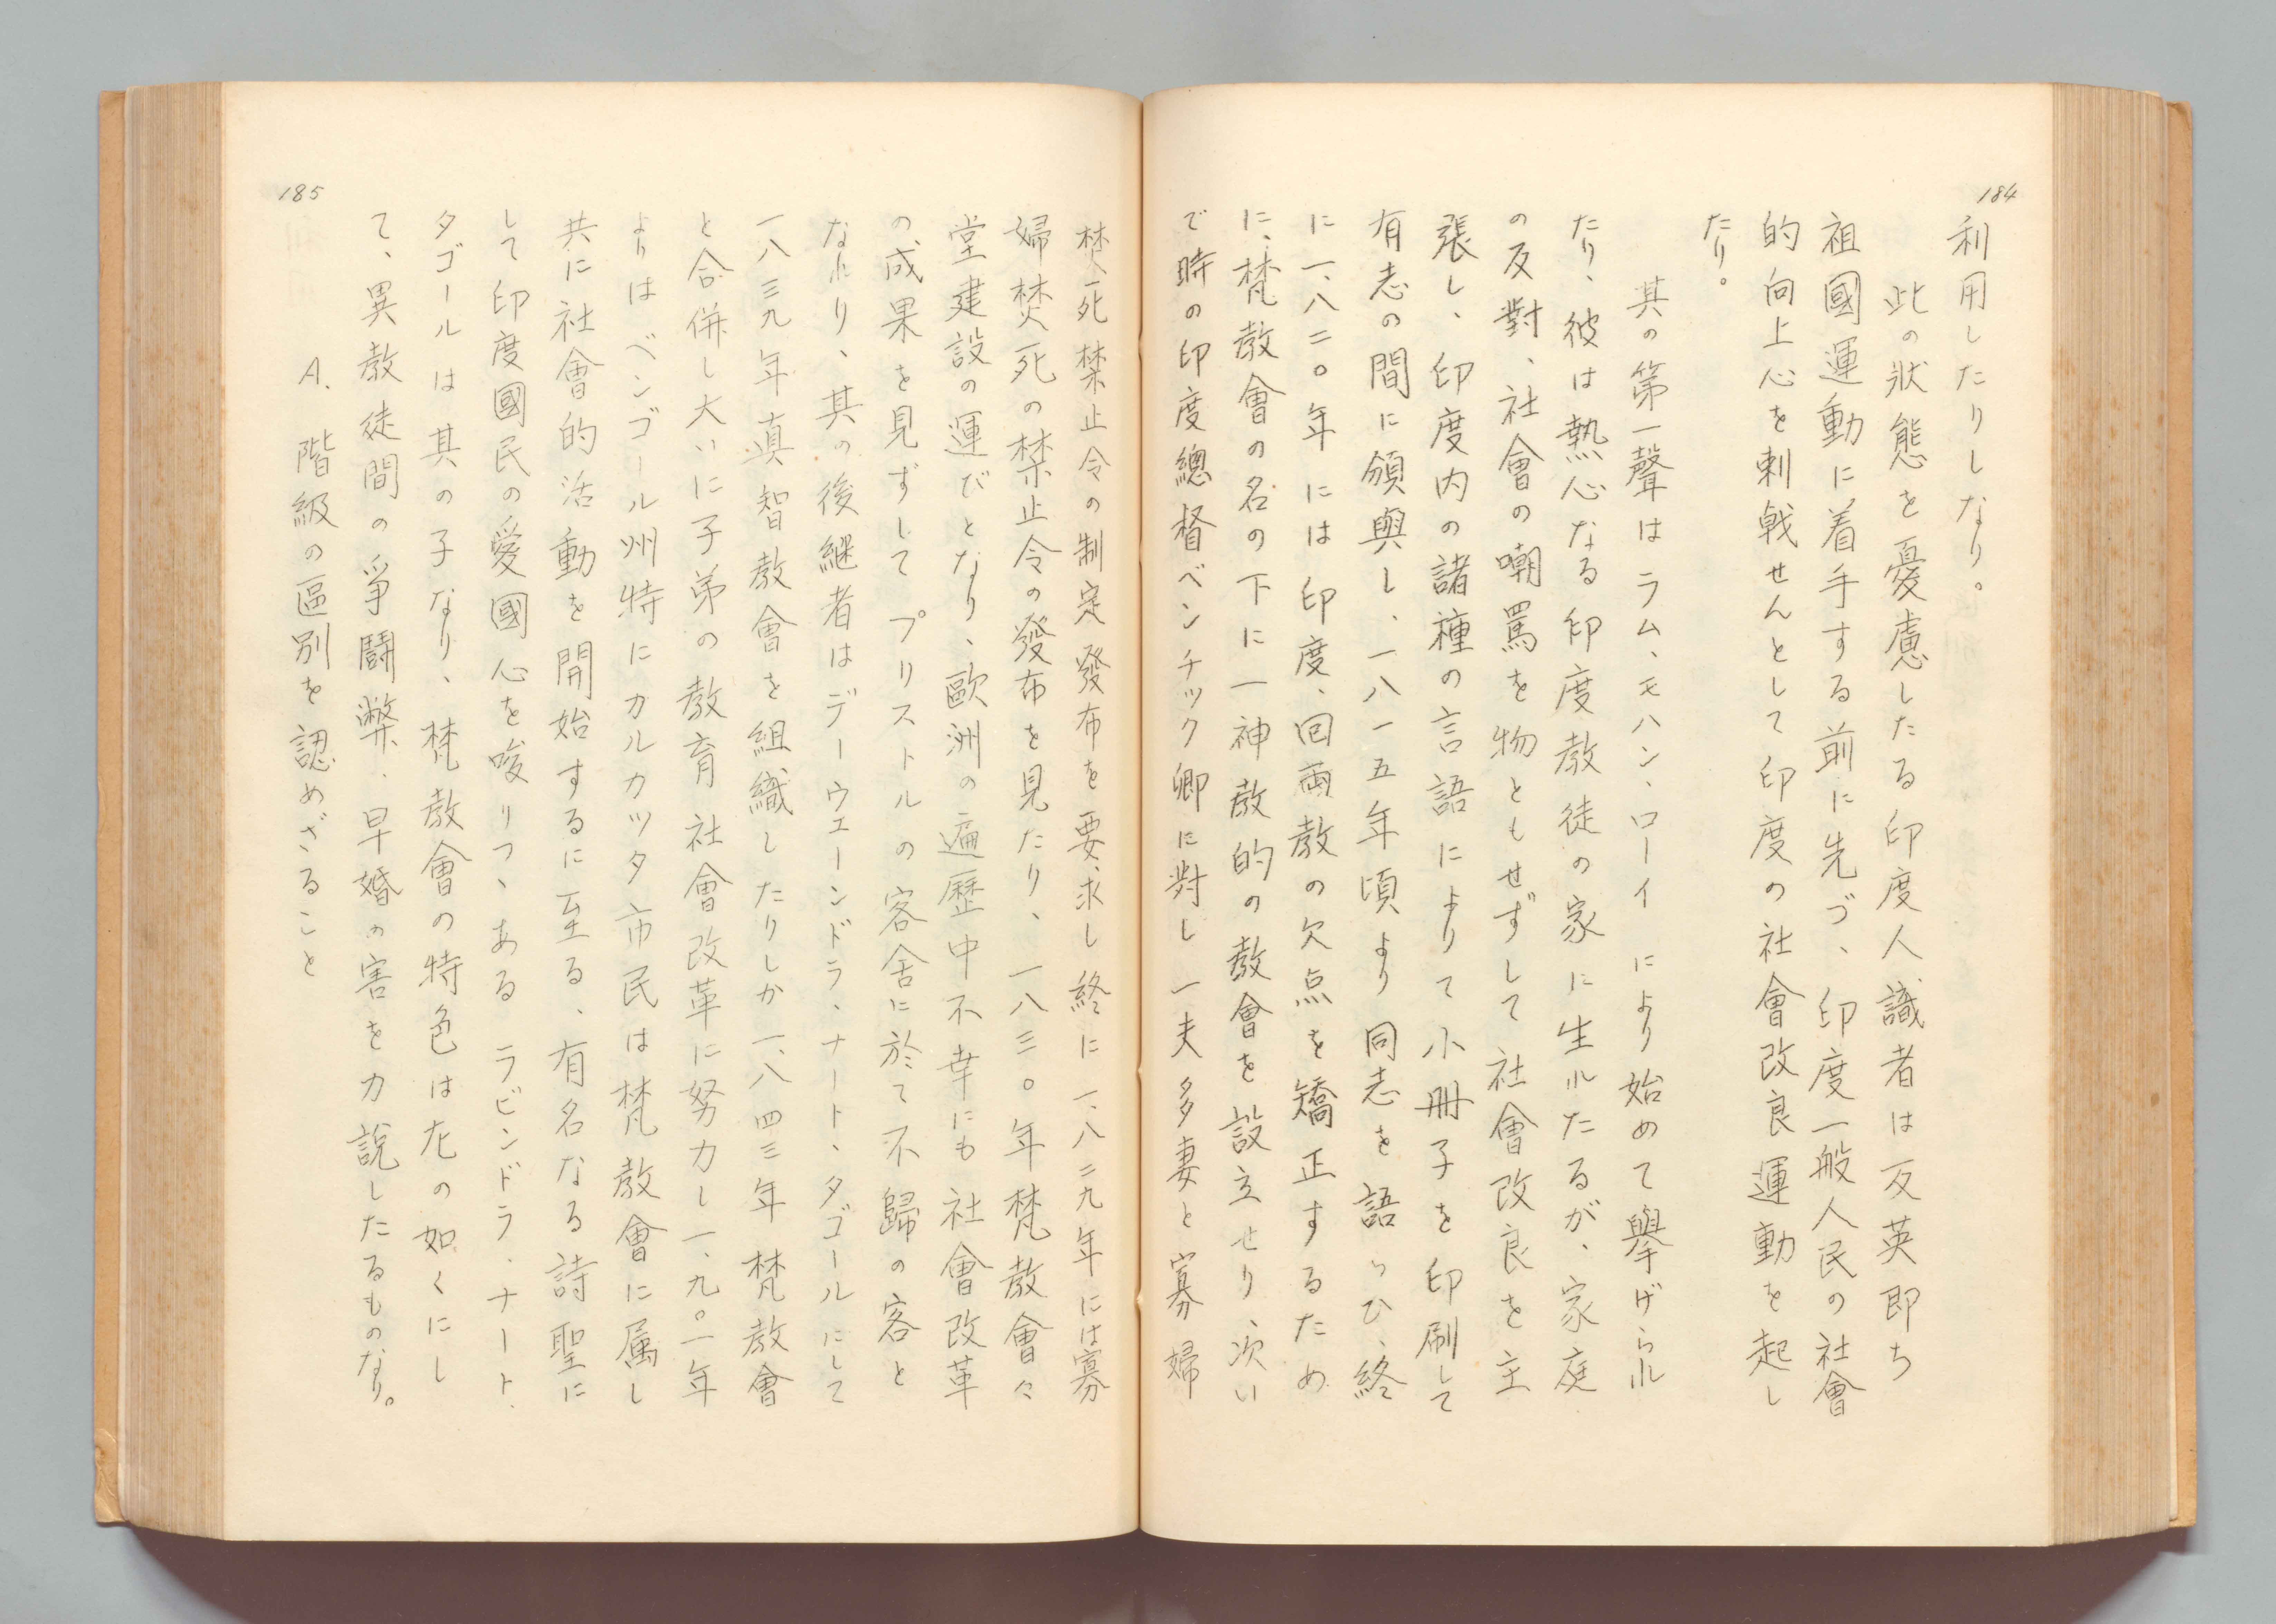 184
利用したりしなり。
此の狀態を憂慮したる印度人識者は反英即ち
祖國運動に着手する前に先づ、印度一般人民の社會
的向上心を刺戟せんとして印度の社會改良運動を起し
たり。
其の第一聲はラム、モハン、ローイにより始めて擧げられ
たり、彼は熱心なる印度教徒の家に生れたるが、家庭
の反對、社會の嘲罵を物ともせずして社會改良を主
張し、印度内の諸種の言語によりて小冊子を印刷して
有志の間に頒與し、一八一五年頃より同志を語らひ、終
に一、八二〇年には印度、回両教の欠点を矯正するため
に、梵教會の名の下に一神教的の教會を設立せり、次い
で時の印度總督ベンチック卿に對し一夫多妻と寡婦
焚死禁止令の制定發布を要求し終に一、八二九年には寡
婦焚死の禁止令の發布を見たり、一八三〇年梵教會々
堂建設の運びとなり、歐洲の遍歷中不幸にも社會改革
の成果を見ずしてプリストルの客舎に於て不歸の客と
なれり、其の後継者はデーウェーンドラ、ナート、タゴールにして
一八三九年真智教會を組織したりしか一、八四三年梵教會
と合併し大いに子弟の教育社會改革に努力し一、九〇一年
よりはベンゴール州特にカルカッタ市民は梵教會に属し
共に社會的活動を開始するに至る、有名なる詩聖に
して印度國民の愛國心を唆りつゝあるラビンドラ、ナート、
タゴールは其の子なり、梵教會の特色は左の如くにし
て、異教徒間の爭鬪弊、早婚の害を力説したるものなり。
A. 階級の區別を認めざること
185